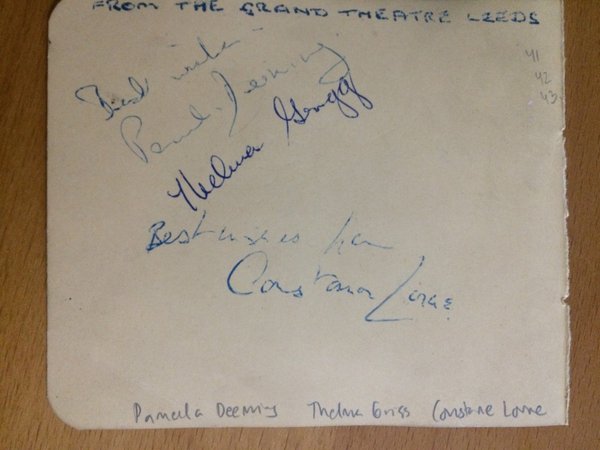 FROM THE GRAND THEATRE LEEDS
41
42
43
Best wishes
Pamela Deeming
Thelma Grigg
Best wishes from
Constance Lorne
Pamela Deeming Thelma Griggs Constance Lorne